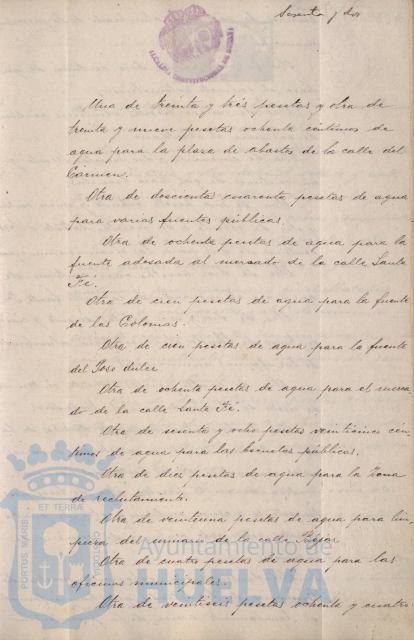 Sesenta y dos
ALCALDIA CONSTITUCIONAL DE HUELVA
Una de treinta y tres pesetas y otra de
treinta y nueve pesetas ochenta céntimos de
agua para la plaza de abastos de la calle del
Carmen.
Otra de doscienta cuarenta pesetas de agua
para varias fuentes públicas.
Otra de ochenta pesetas de agua para la
fuente adosada al mercado de la calle Santa
Fé.
Otra de cien pesetas de agua para la fuente
de las Colonias.
Otra de cien pesetas de agua para la fuente
del Poso dulce
Otra de ochenta pesetas de agua para el merca-
do de la calle Santa Fé.
Otra de sesenta y ocho pesetas veinticinco cén-
timos de agua para las bocas públicas.
Otra de diez pesetas de agua para la Zona
de reclutamiento.
Otra de veintiuna pesetas de agua para lim-
pieza del urinario de la calle Béjar
Otra de cuatro pesetas de agua para las
oficinas municipales.
Otra de veintiseis pesetas ochenta y cuatro
PORTUS MARIS ET TERRÆ CUSTODIA
Ayuntamiento de
HUELVA